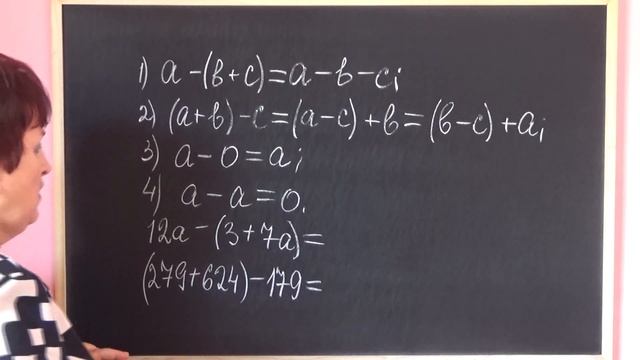 1) a-(b+c)=a-b-c;
2) (a+b)-c=(a-c)+b=(b-c)+a;
3) a-0=a;
4) a-a=0.
12a-(3+7a)=
(279+624)-179=